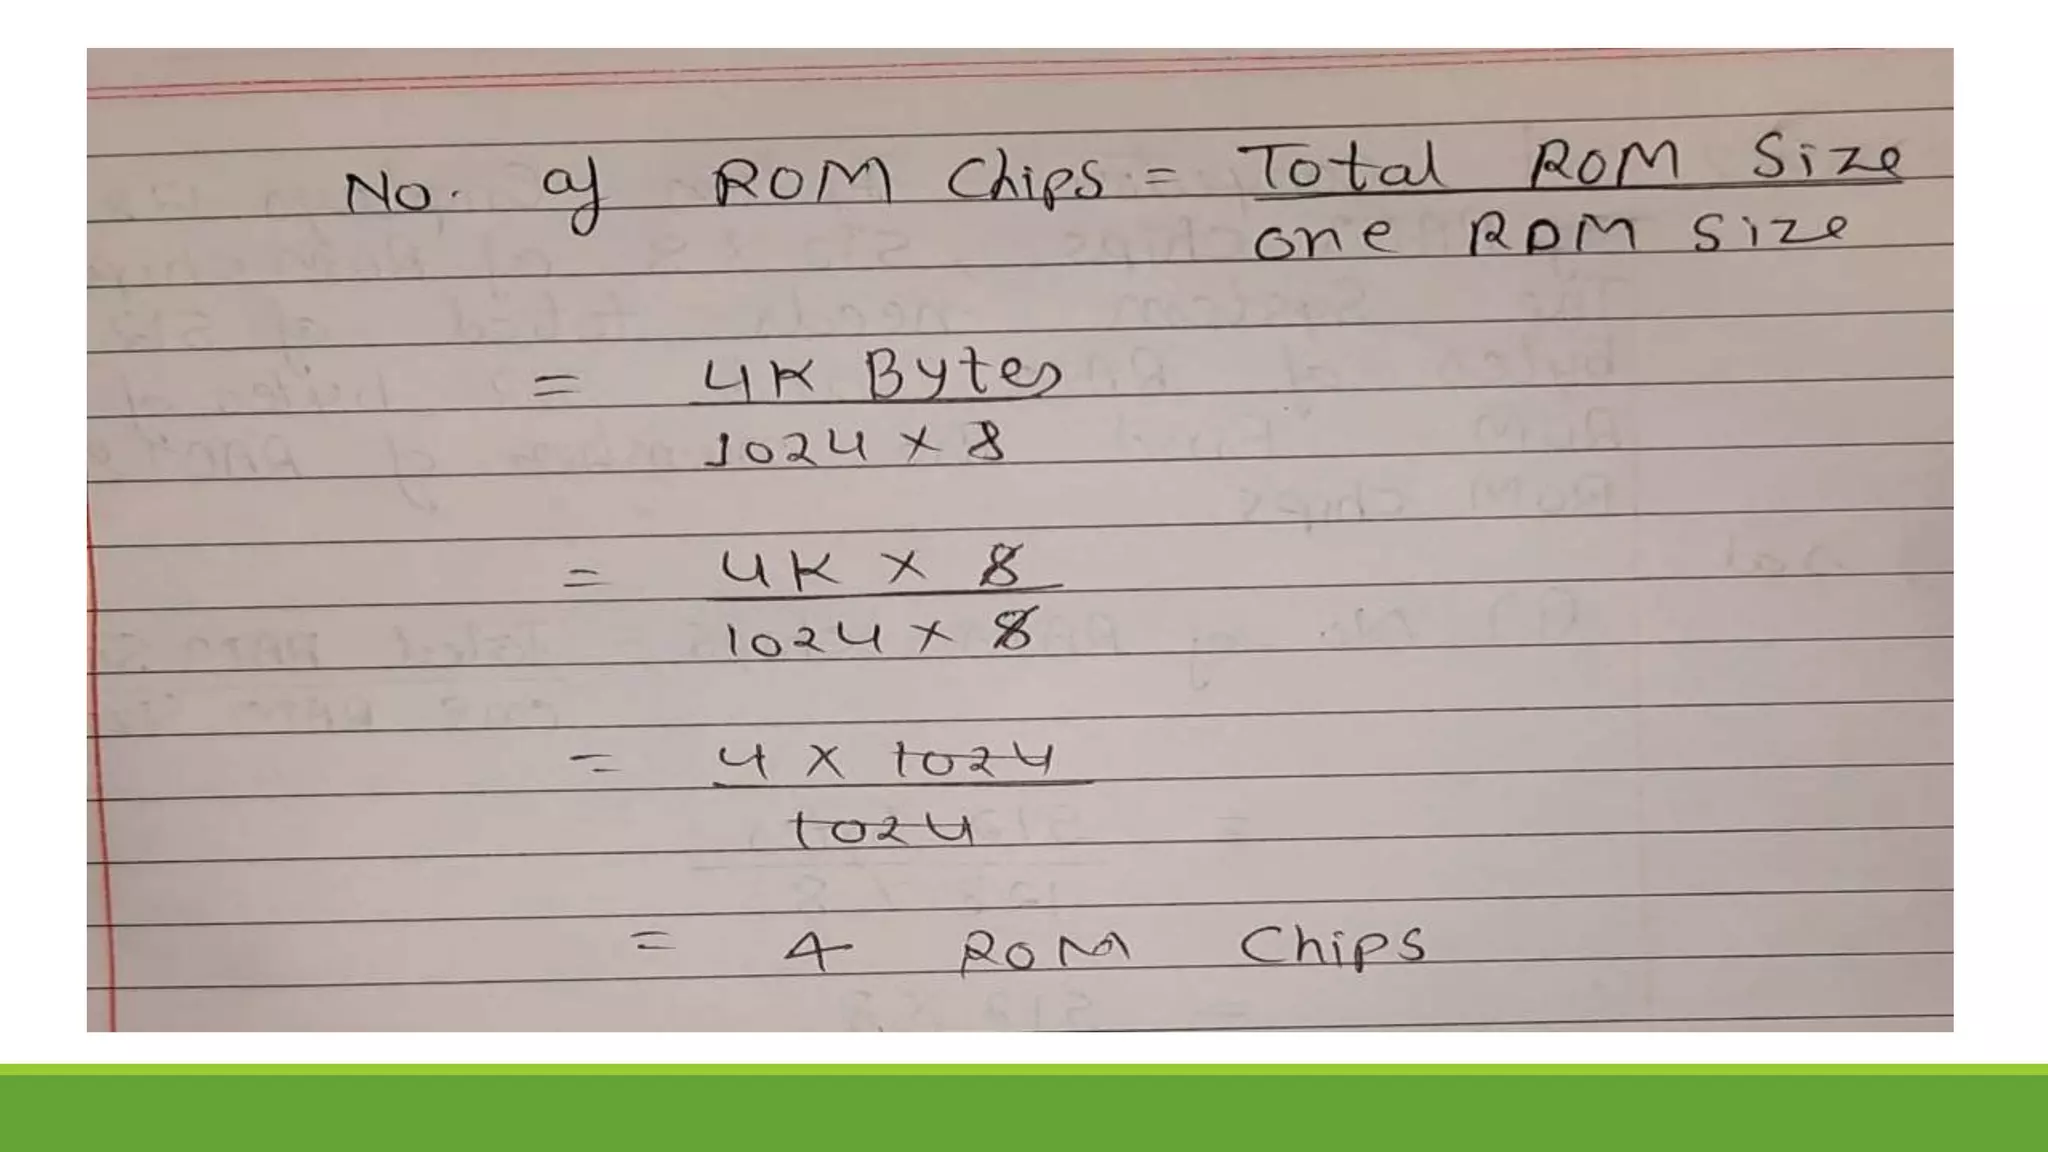 No. of ROM Chips = Total ROM Size
one ROM Size
= 4K Bytes
1024 × 8
= 4K × 8
1024 × 8
= 4 × 1024
1024
= 4 ROM Chips